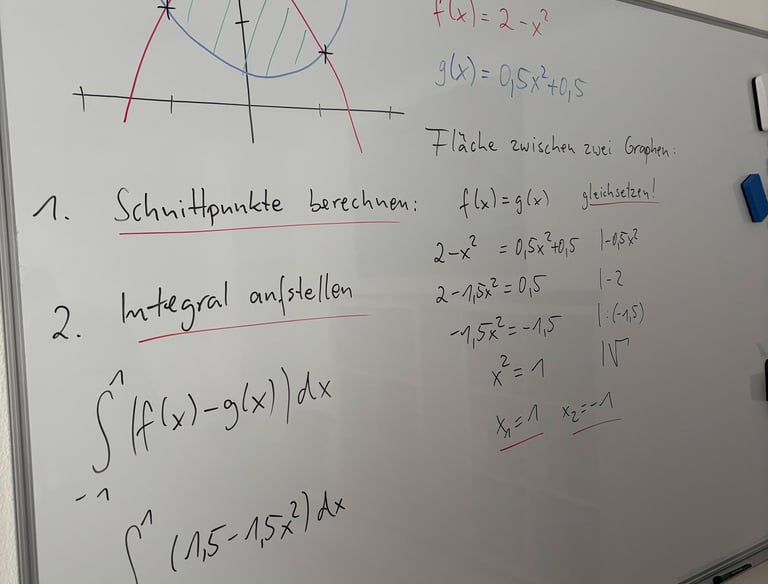 f(x) = 2 - x²
g(x) = 0,5x² + 0,5
Fläche zwischen zwei Graphen:
1. Schnittpunkte berechnen: f(x) = g(x) gleichsetzen!
2 - x² = 0,5x² + 0,5 | -0,5x²
2 - 1,5x² = 0,5 | -2
-1,5x² = -1,5 | :(-1,5)
x² = 1 | √
x₁ = 1 x₂ = -1
2. Integral aufstellen
∫₋₁¹ (f(x) - g(x)) dx
∫¹ (1,5 - 1,5x²) dx